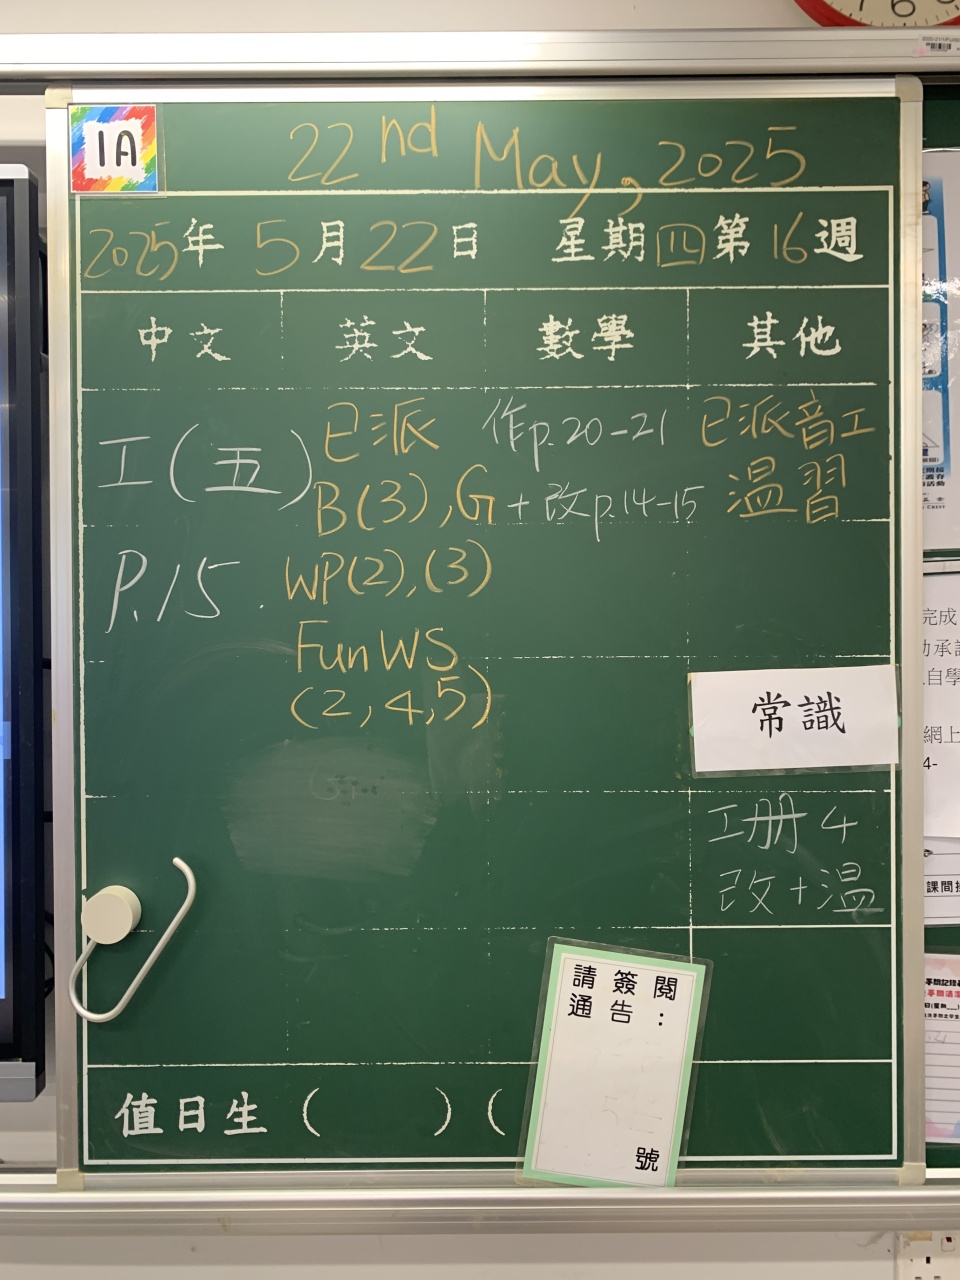 1A
22nd May, 2025
2025年 5月22日 星期四第16週
中文 英文 數學 其他
工(五)
P.15.
已派
B(3),G
WP(2),(3)
Fun WS
(2,4,5)
作p.20-21
+改p.14-15
已派音工
温習
常識
工册4
改+温
請簽閱
通告:
號
值日生( )(
完成
自學
網上
4-